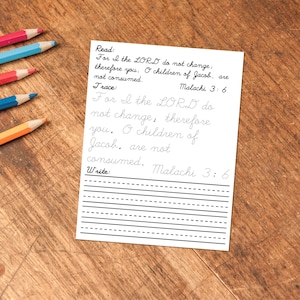 Read:
For I the LORD do not change;
therefore you, O children of Jacob, are
not consumed.
Trace: Malachi 3:6
For I the LORD do
not change; therefore
you, O children of
Jacob, are not
consumed. Malachi 3:6
Write: